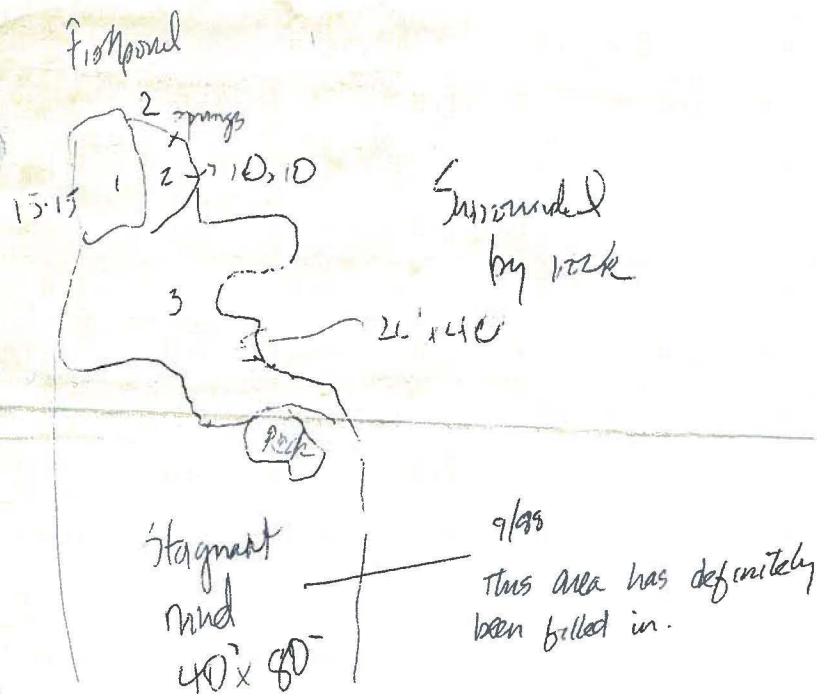 Fishpond
2 springs
1
2
10 x 10
15 x 15
Surrounded
by rock
3
Rock
Stagnant
mud
40' x 80'
9/88
This area has definitely
been filled in.